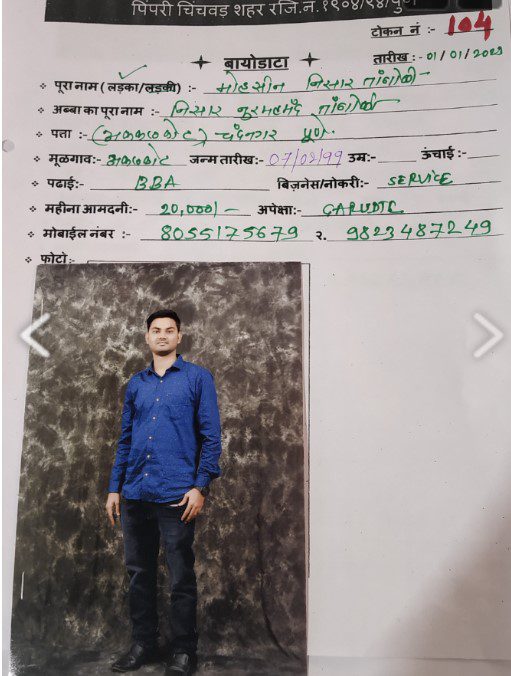 पिंपरी चिंचवड शहर रजि.नं.१९०४/९४/पुणे
टोकन नं :- 104
बायोडाटा
तारीख :- 01/01/2023
पूरा नाम (लड़का/लड़की) :- मोहसीन निसार तांबोळी
अब्बा का पूरा नाम :- निसार नुरमहमद तांबोळी
पता :- (अक्कलकोट) चंदननगर पुणे.
मूळगाव:- अक्कलकोट जन्म तारीख:- 07/08/99 उम्र:- ऊंचाई :-
पढाई:- BBA बिज़नेस/नोकरी:- SERVICE
महीना आमदनी:- 20,000/- अपेक्षा:-
मोबाईल नंबर :- 8055175679 २. 9823487249
फोटो:-